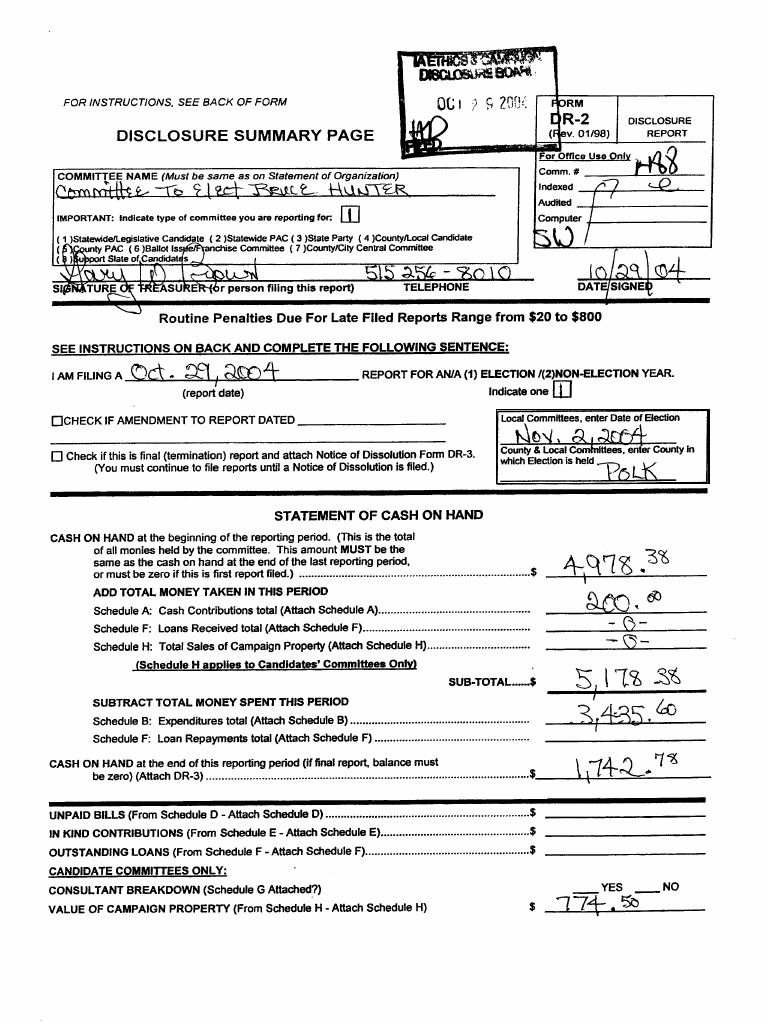 IA ETHICS & CAMPAIGN
DISCLOSURE BOARD
FOR INSTRUCTIONS, SEE BACK OF FORM
OCT 29 2004
FILED
FORM
DR-2
(Rev. 01/98)
DISCLOSURE
REPORT
DISCLOSURE SUMMARY PAGE
For Office Use Only
Comm. #
Indexed
Audited
Computer
SW
COMMITTEE NAME (Must be same as on Statement of Organization)
Committee To Elect BRUCE HUNTER
IMPORTANT: Indicate type of committee you are reporting for: 1
( 1 )Statewide/Legislative Candidate ( 2 )Statewide PAC ( 3 )State Party ( 4 )County/Local Candidate
( 5 )County PAC ( 6 )Ballot Issue/Franchise Committee ( 7 )County/City Central Committee
( 8 )Support Slate of Candidates
515 256-8010
10/29/04
SIGNATURE OF TREASURER (or person filing this report) TELEPHONE DATE SIGNED
Routine Penalties Due For Late Filed Reports Range from $20 to $800
SEE INSTRUCTIONS ON BACK AND COMPLETE THE FOLLOWING SENTENCE:
I AM FILING A Oct. 29, 2004 REPORT FOR AN/A (1) ELECTION /(2)NON-ELECTION YEAR.
(report date) Indicate one 1
CHECK IF AMENDMENT TO REPORT DATED
Check if this is final (termination) report and attach Notice of Dissolution Form DR-3.
(You must continue to file reports until a Notice of Dissolution is filed.)
Local Committees, enter Date of Election
Nov. 2, 2004
County & Local Committees, enter County in
which Election is held POLK
STATEMENT OF CASH ON HAND
CASH ON HAND at the beginning of the reporting period. (This is the total
of all monies held by the committee. This amount MUST be the
same as the cash on hand at the end of the last reporting period,
or must be zero if this is first report filed.) $ 4,978.38
ADD TOTAL MONEY TAKEN IN THIS PERIOD
Schedule A: Cash Contributions total (Attach Schedule A) 200.00
Schedule F: Loans Received total (Attach Schedule F) -0-
Schedule H: Total Sales of Campaign Property (Attach Schedule H) -0-
(Schedule H applies to Candidates' Committees Only)
SUB-TOTAL......$ 5,178 38
SUBTRACT TOTAL MONEY SPENT THIS PERIOD
Schedule B: Expenditures total (Attach Schedule B) 3,435.60
Schedule F: Loan Repayments total (Attach Schedule F)
CASH ON HAND at the end of this reporting period (if final report, balance must
be zero) (Attach DR-3) $ 1,742.78
UNPAID BILLS (From Schedule D - Attach Schedule D) $
IN KIND CONTRIBUTIONS (From Schedule E - Attach Schedule E) $
OUTSTANDING LOANS (From Schedule F - Attach Schedule F) $
CANDIDATE COMMITTEES ONLY:
CONSULTANT BREAKDOWN (Schedule G Attached?) YES NO
VALUE OF CAMPAIGN PROPERTY (From Schedule H - Attach Schedule H) $ 774.50